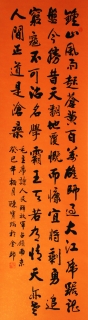 鍾山風雨起蒼黃百萬雄師過大江虎踞龍
盤今勝昔天翻地覆慨而慷宜將剩勇追
窮寇不可沽名學霸王天若有情天亦老
人間正道是滄桑
毛主席詩人民解放軍占領南京
癸巳年